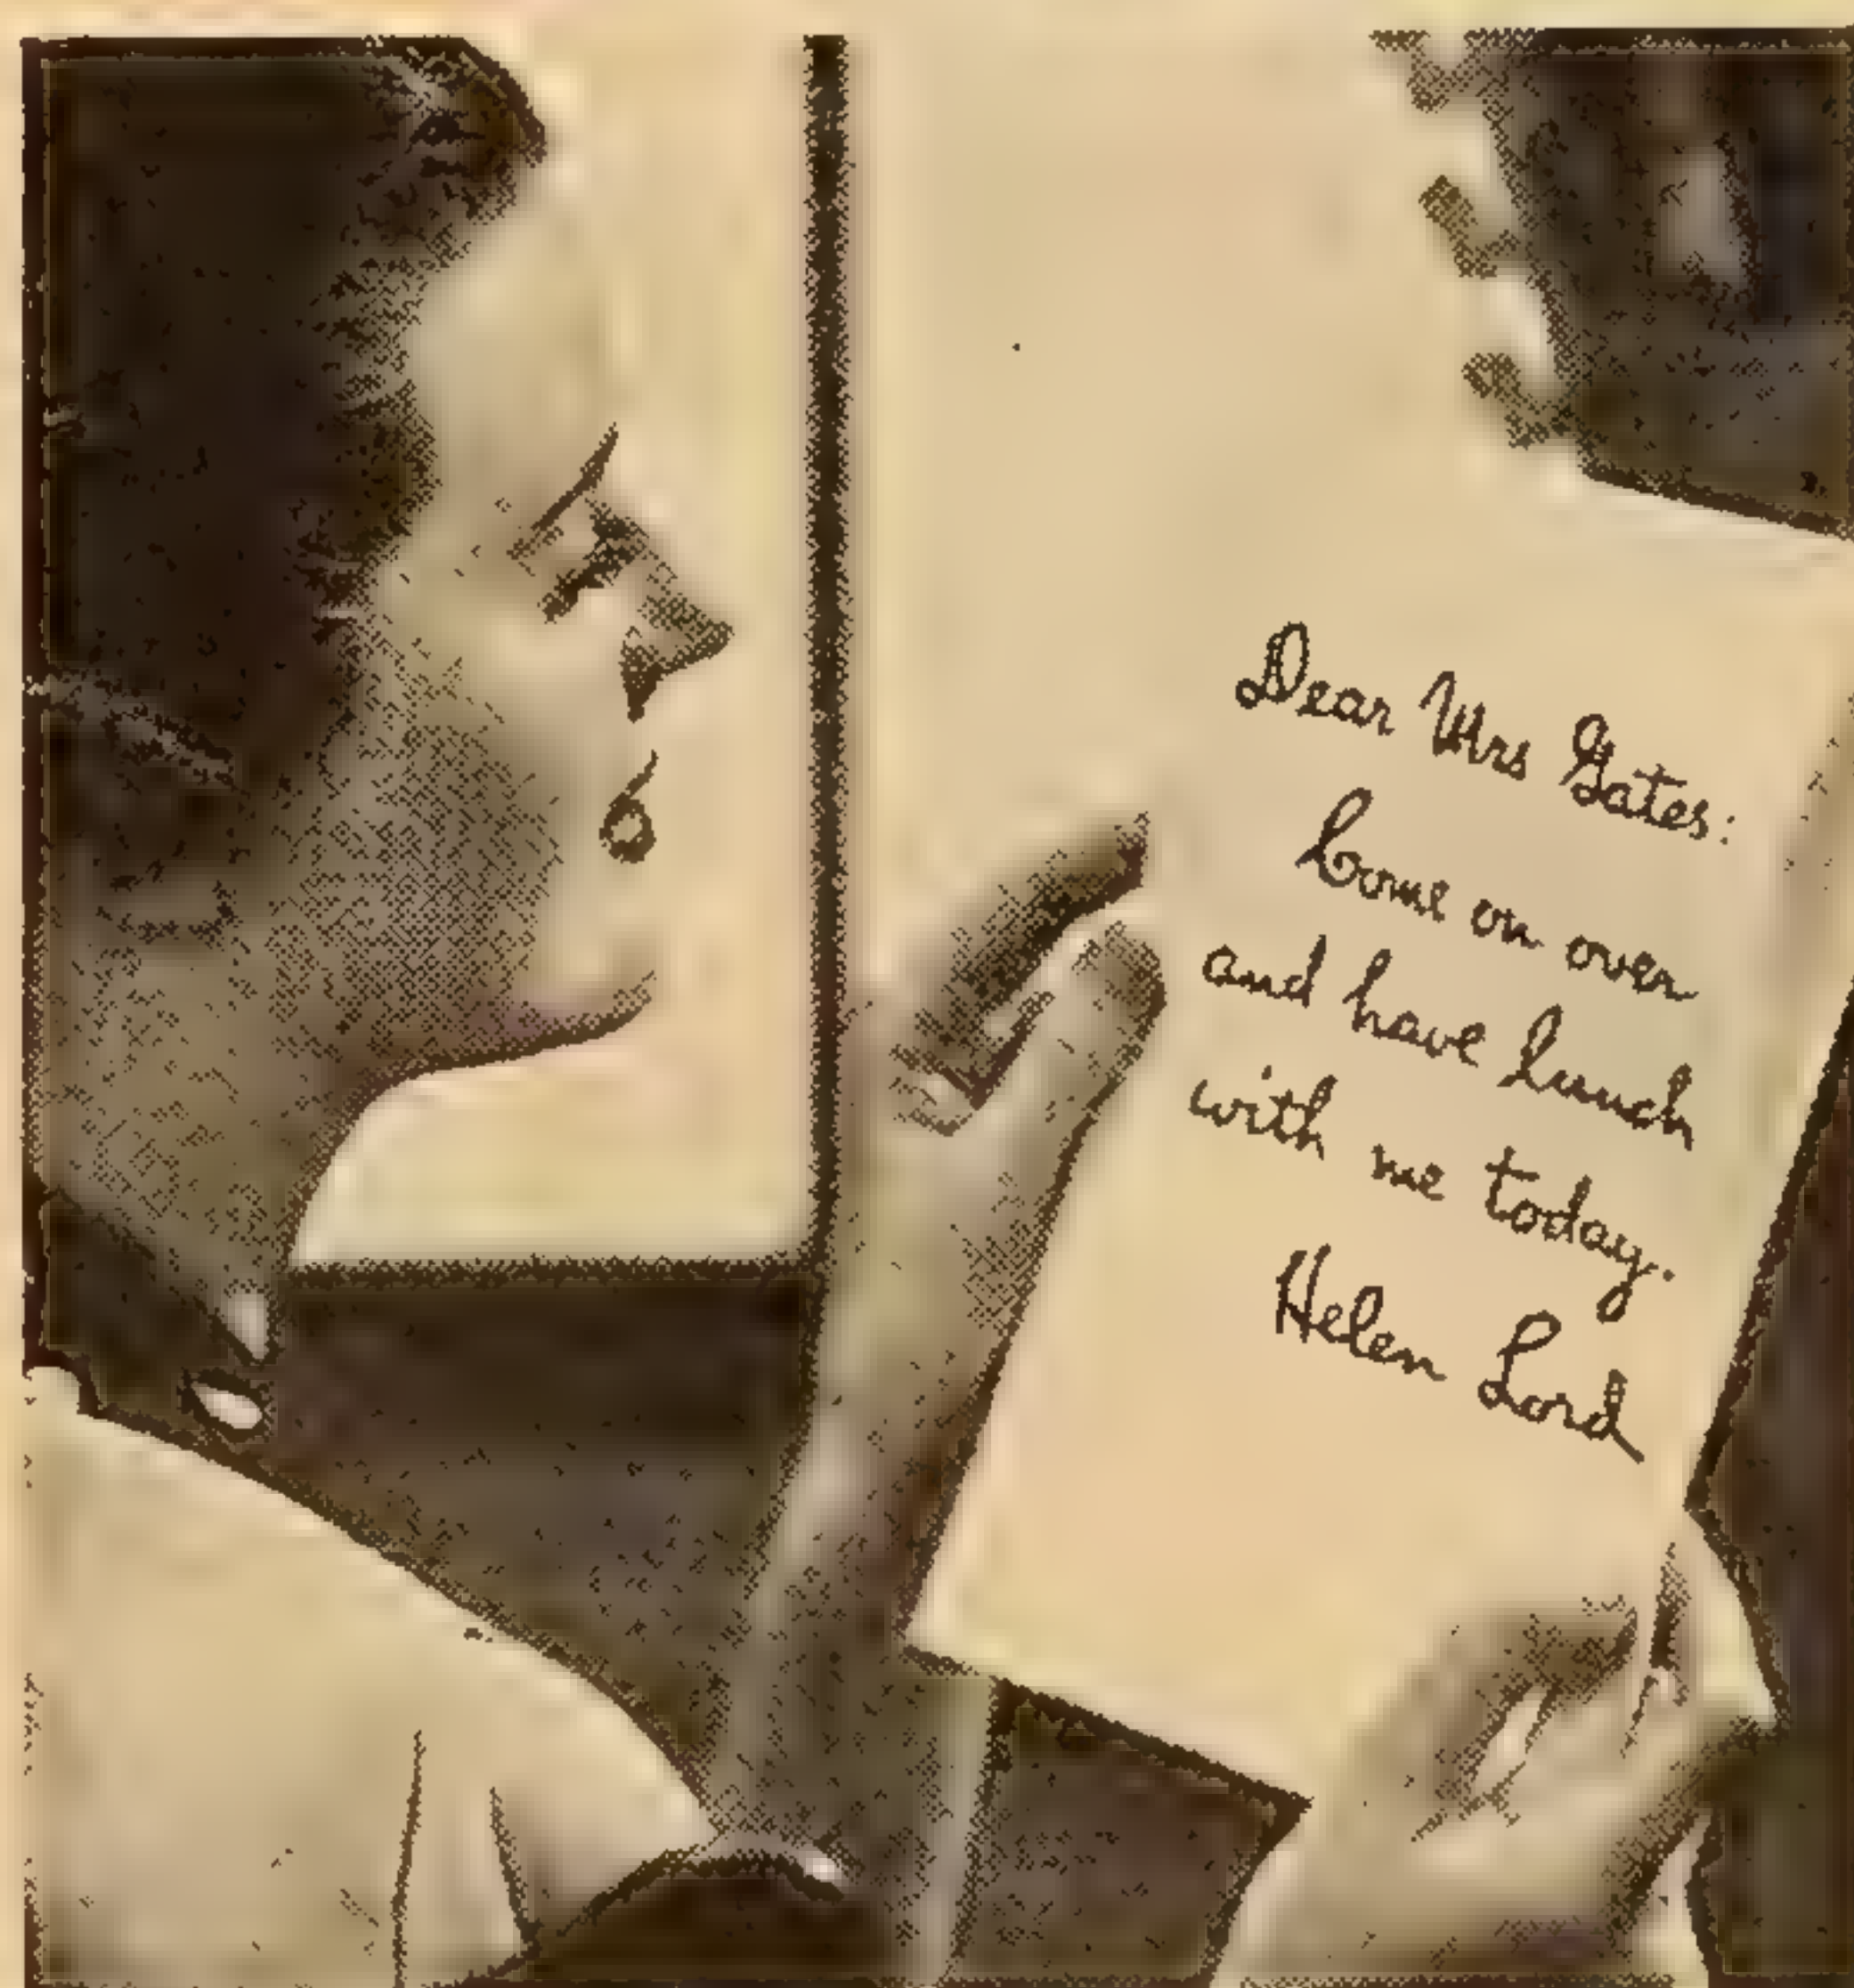 Dear Mrs Gates:
Come on over
and have lunch
with me today.
Helen Lord